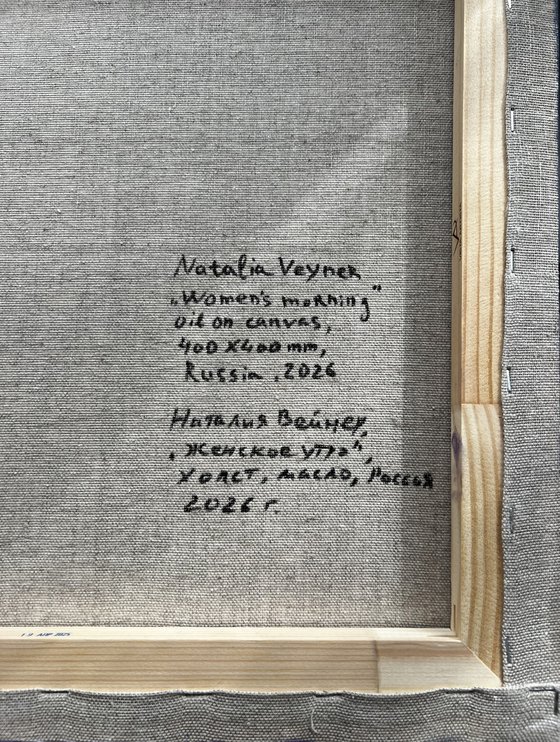 Natalia Veyner
„Women's morning"
oil on canvas,
400 x 400 mm,
Russia, 2026
Наталия Вейнер,
„Женское утро",
холст, масло, Россия
2026 г.
АПР 2025